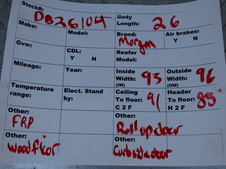 Stock#: DB26104 Body Length: 26
Make: Model: Brand: Morgan Air brakes: Y N
Gvw: CDL: Y N Reefer Model:
Mileage: Year: Inside Width: 93 Outside Width: 96
Temperature range: Elect. Stand by: Ceiling To floor: 91 C 2 F Header To floor: 85 H 2 F
Other: FRP Other: Roll up door
Other: Wood floor Other: Curbside door